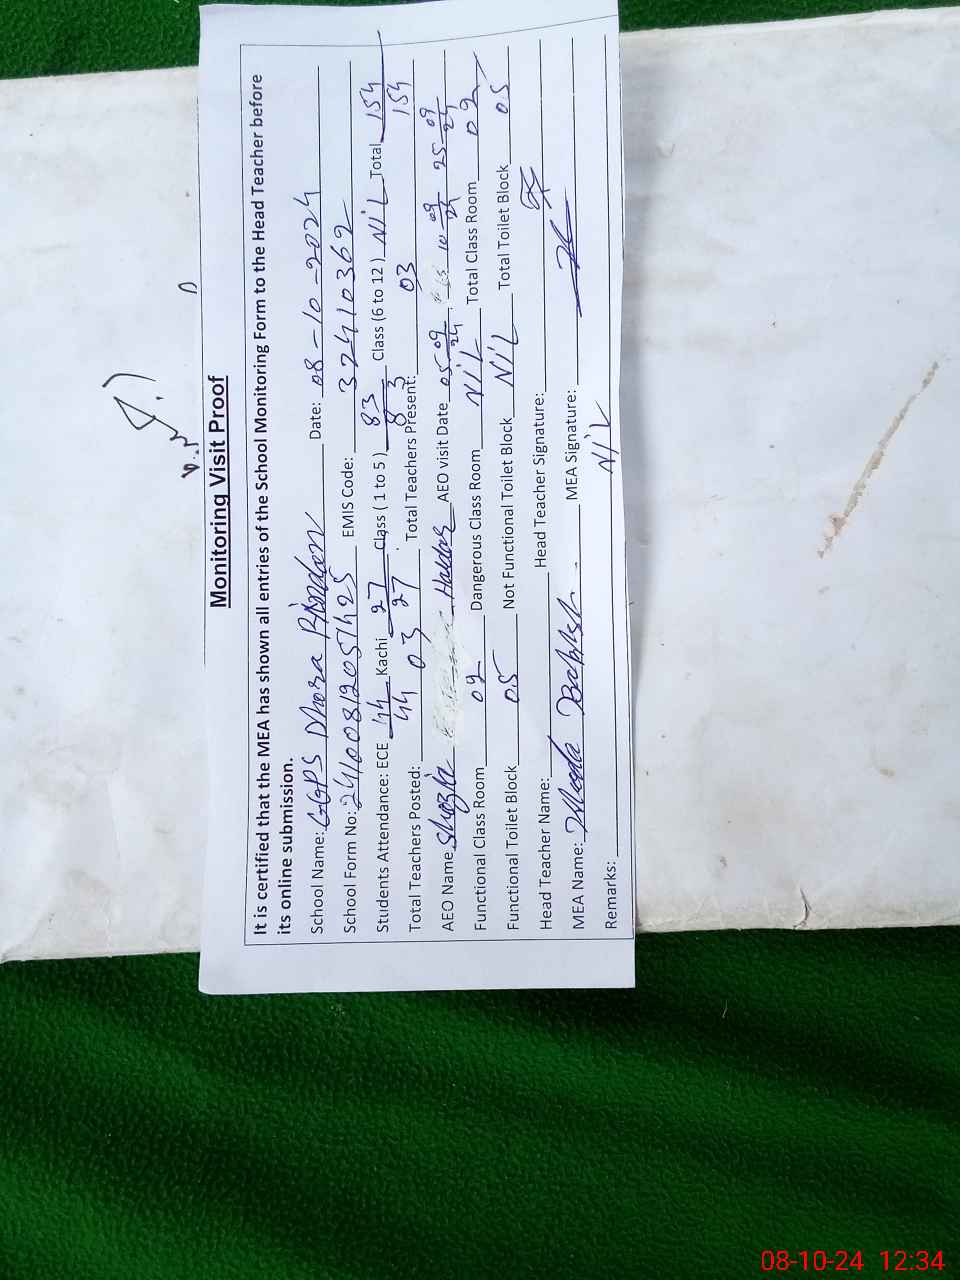 Monitoring Visit Proof
It is certified that the MEA has shown all entries of the School Monitoring Form to the Head Teacher before
its online submission.
School Name: GGPS Dhora Date: 08-10-2024
School Form No: EMIS Code: 32410362
Students Attendance: ECE 44 Kachi 27 Class ( 1 to 5 ) 83 Class (6 to 12 ) NiL Total 154
44 27 83 154
Total Teachers Posted: 03 Total Teachers Present: 03
AEO Name Shazia Haidar AEO visit Date 05-09/24, 10-09/24 25-09/24
Functional Class Room 02 Dangerous Class Room NiL Total Class Room 02
Functional Toilet Block 05 Not Functional Toilet Block NiL Total Toilet Block 05
Head Teacher Name: Head Teacher Signature:
MEA Name: Bakhsh MEA Signature:
Remarks: NiL
08-10-24 12:34